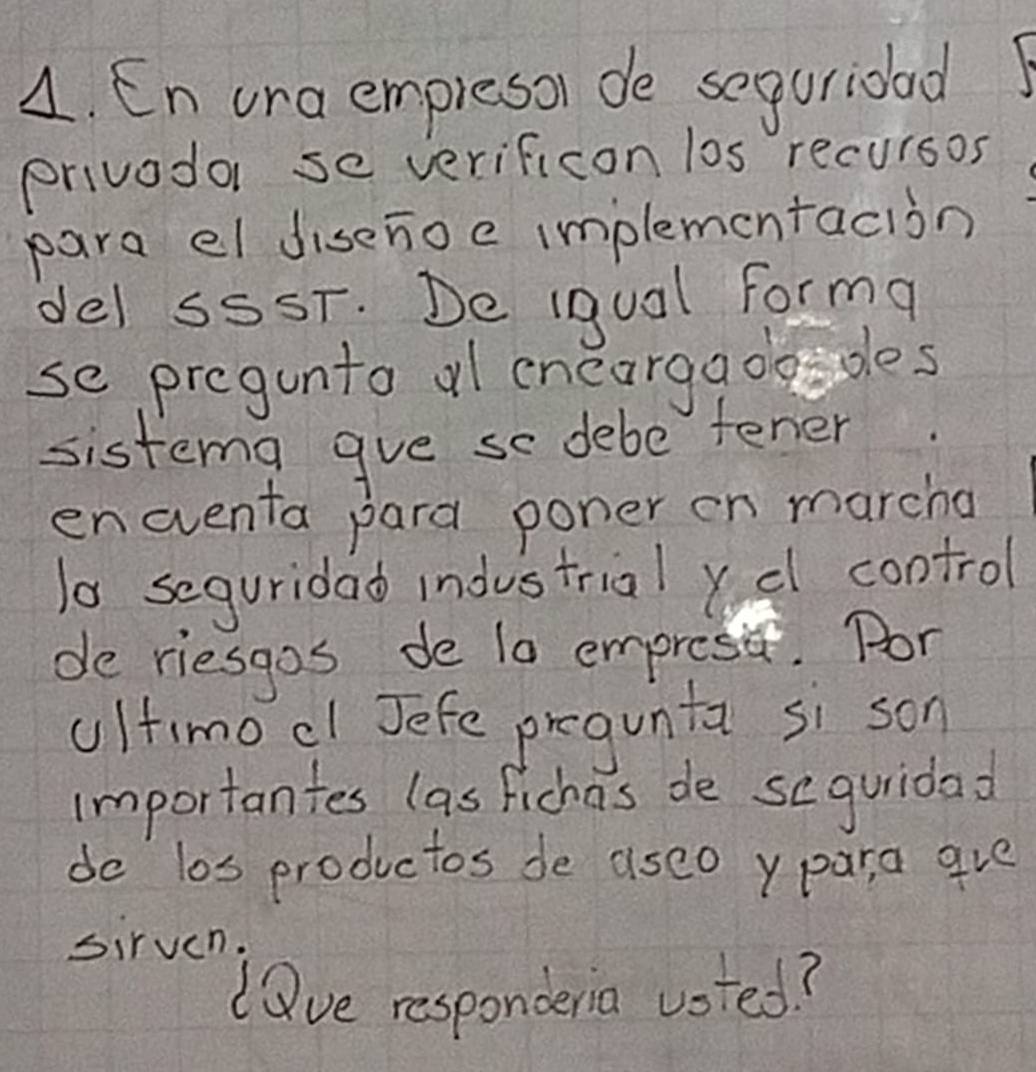 1. En una empresa de seguridad
privada se verifican los recursos
para el diseño e implementación
del SSST. De igual forma
se pregunta al encargado des
sistema que se debe tener.
en cuenta para poner en marcha
la seguridad industrial y el control
de riesgos de la empresa. Por
ultimo el Jefe pregunta si son
importantes las fichas de seguridad
de los productos de aseo y para que
sirven.
¿Que responderia usted?